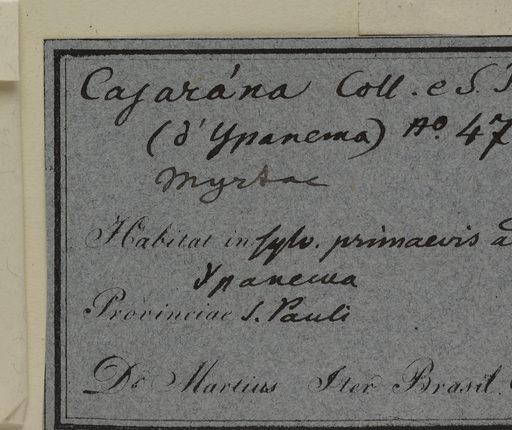 Cajarána Coll. e S.
(d'Ypanema) No. 47
Myrtac
Habitat in sylv. primaevis a
Ypanema
Provinciae S. Pauli
Dr. Martius Iter Brasil.